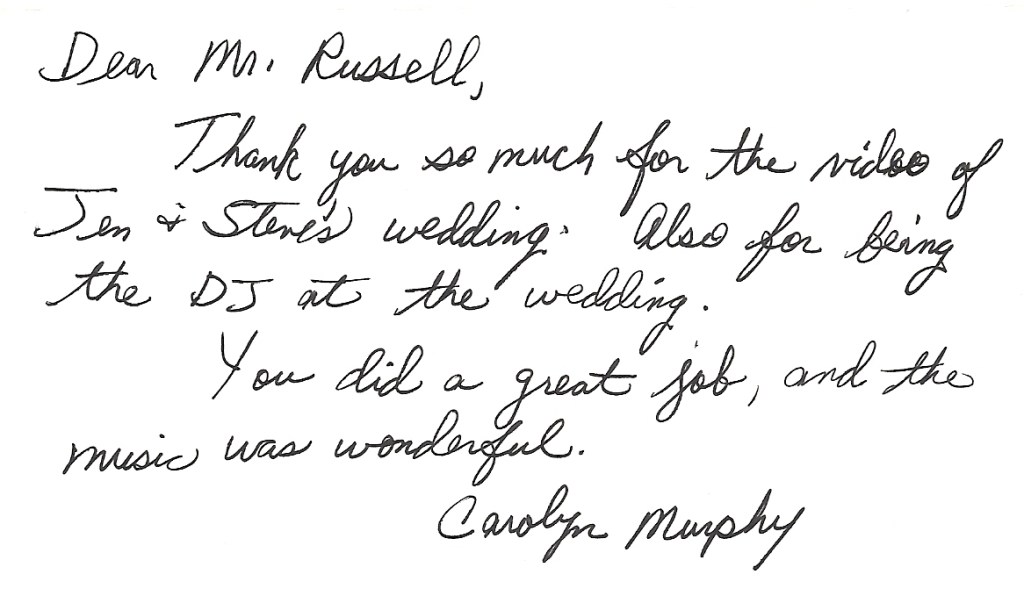 Dear Mr. Russell,
Thank you so much for the video of
Jen & Steve's wedding. Also for being
the DJ at the wedding.
You did a great job, and the
music was wonderful.
Carolyn Murphy